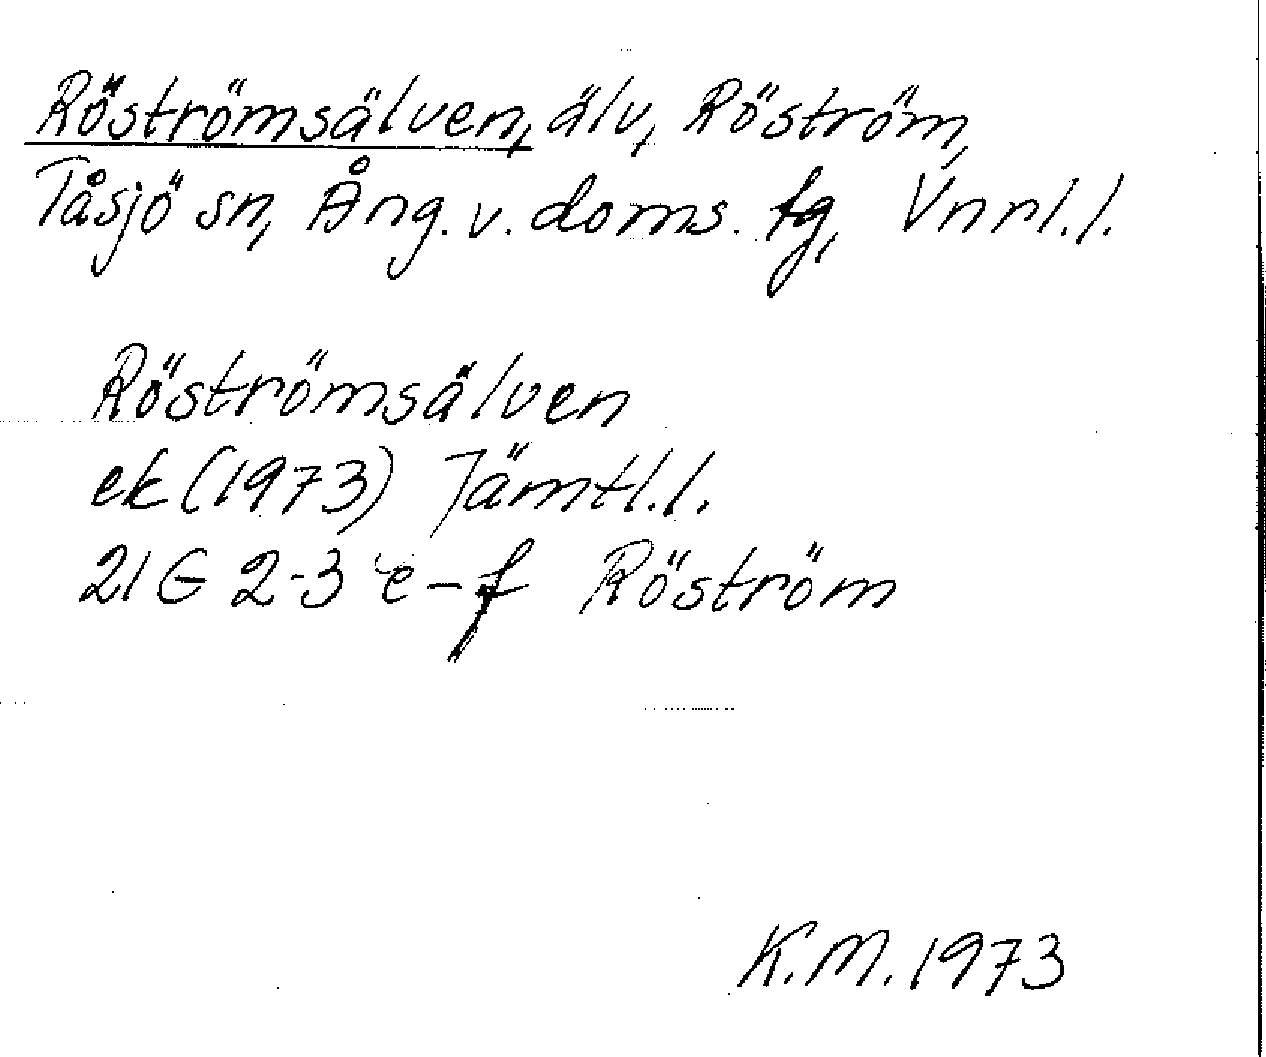 Röströmsälven, älv, Röström,
Tåsjö sn, Ång. v. doms. tg, Vnrl. l.
Röströmsälven
ek (1973) Jämtl. l.
21 G 2-3 e-f Röström
K. M. 1973